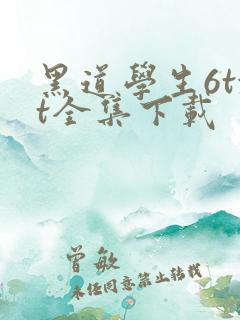 黑道學生6tx
t全集下載
曾敏
未經同意禁止轉載